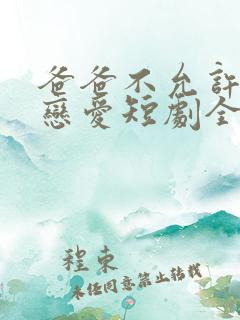 爸爸不允許
戀愛短劇全
程東
未任同意禁止转载